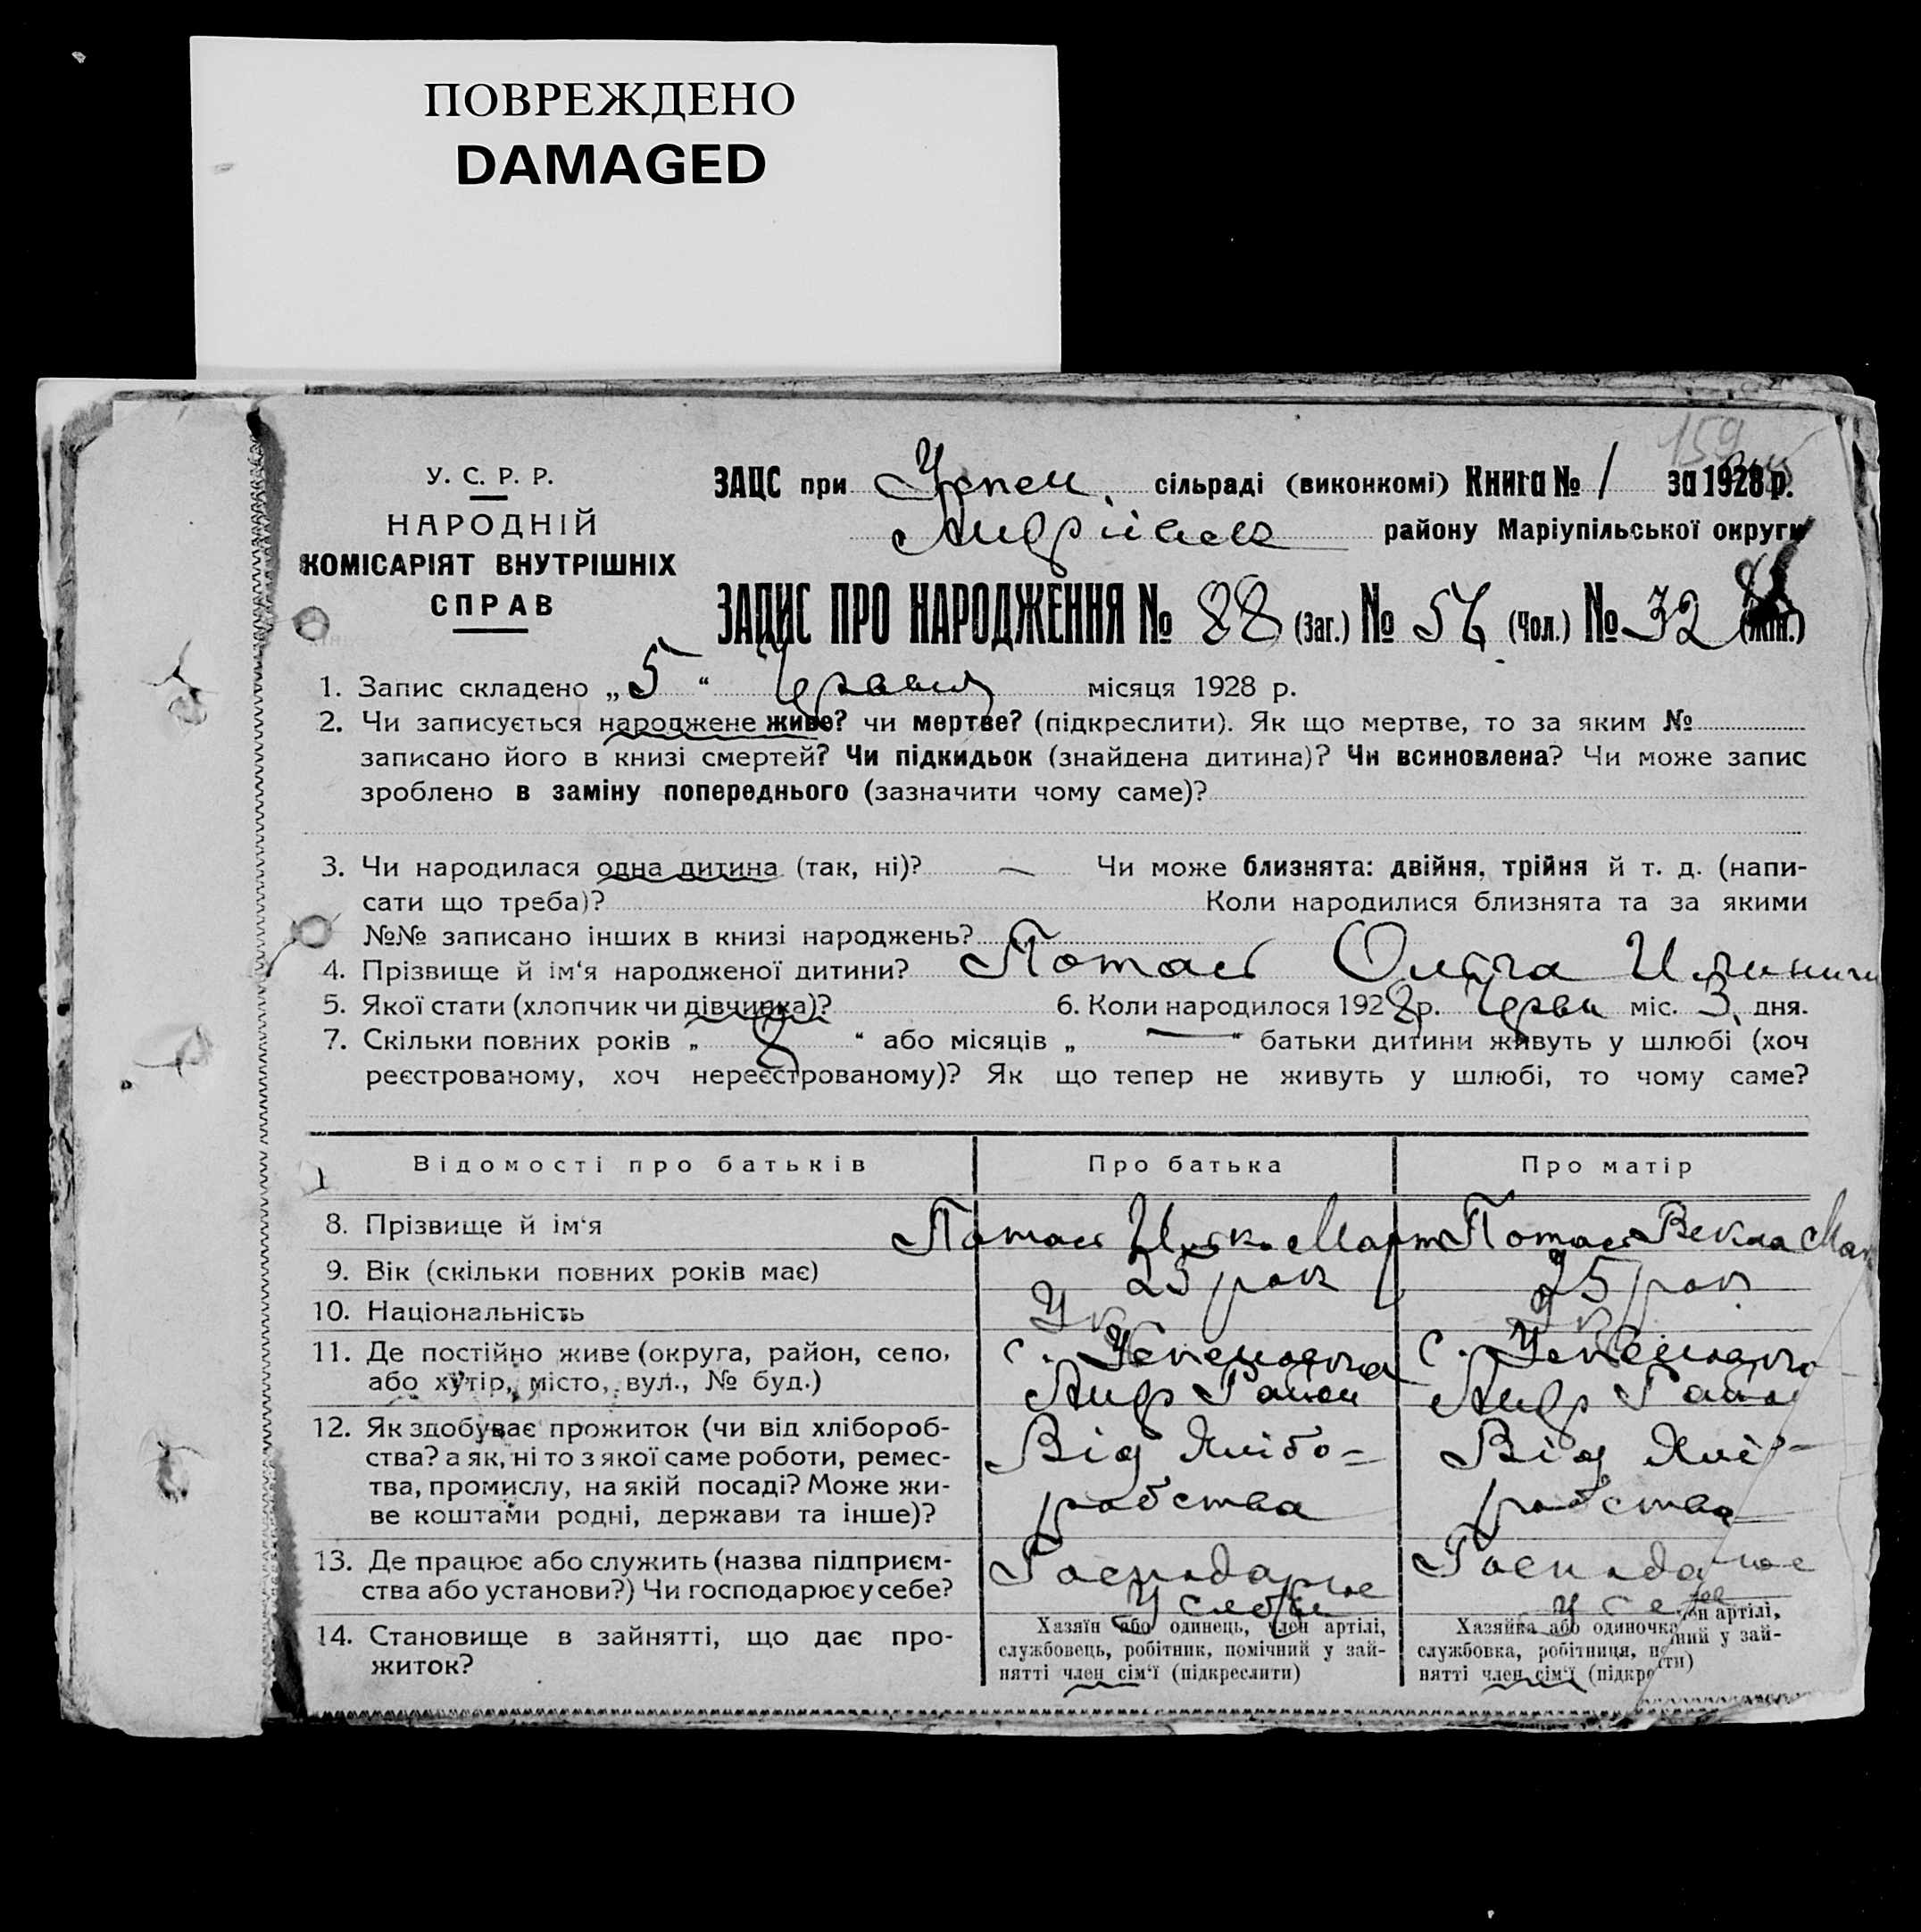 ПОВРЕЖДЕНО
DAMAGED
159
У. С. Р. Р.
НАРОДНІЙ
КОМІСАРІЯТ ВНУТРІШНІХ
СПРАВ
ЗАЦС при Успен. сільраді (виконкомі) Книга № 1 за 1928 р.
Андріївськ району Маріупільської округи
ЗАПИС ПРО НАРОДЖЕННЯ № 88 (Заг.) № 56 (Чол.) № 32 (Жін.)
1. Запис складено „ 5 “ Червня місяця 1928 р.
2. Чи записується народжене живе? чи мертве? (підкреслити). Як що мертве, то за яким №
записано його в книзі смертей? Чи підкидьок (знайдена дитина)? Чи всиновлена? Чи може запис
зроблено в заміну попереднього (зазначити чому саме)?
3. Чи народилася одна дитина (так, ні)? — Чи може близнята: двійня, трійня й т. д. (напи-
сати що треба)? Коли народилися близнята та за якими
№№ записано інших в книзі народжень?
4. Прізвище й ім‘я народженої дитини? Потас Ольга
5. Якої стати (хлопчик чи дівчинка)? 6. Коли народилося 1928 р. Черв міс. 3 дня.
7. Скільки повних років „ 8 “ або місяців „ — “ батьки дитини живуть у шлюбі (хоч
реєстрованому, хоч нереєстрованому)? Як що тепер не живуть у шлюбі, то чому саме?
Відомості про батьків Про батька Про матір
8. Прізвище й ім‘я Потас Илько Март Потас Векла Мак
9. Вік (скільки повних років має) 25 рок 25 рок
10. Національність Укр Укр
11. Де постійно живе (округа, район, село, с. Успеновка с. Успеновка
або хутір, місто, вул., № буд.) Андр Район Андр Район
12. Як здобуває прожиток (чи від хлібороб-
ства? а як, ні то з якої саме роботи, ремес- Від Хлібо= Від Хліб-
тва, промислу, на якій посаді? Може жи-
ве коштами родні, держави та інше)? робства робства
13. Де працює або служить (назва підприєм- Господарює Господарює
ства або установи?) Чи господарює у себе? У себе У себе
14. Становище в зайнятті, що дає про-
житок?
Хазяїн або одинець, член артілі,
службовець, робітник, помічний у зай-
нятті член сім‘ї (підкреслити)
Хазяйка або одиночка член артілі,
службовка, робітниця, по ний у зай-
нятті член сім‘ї (підкре ти)